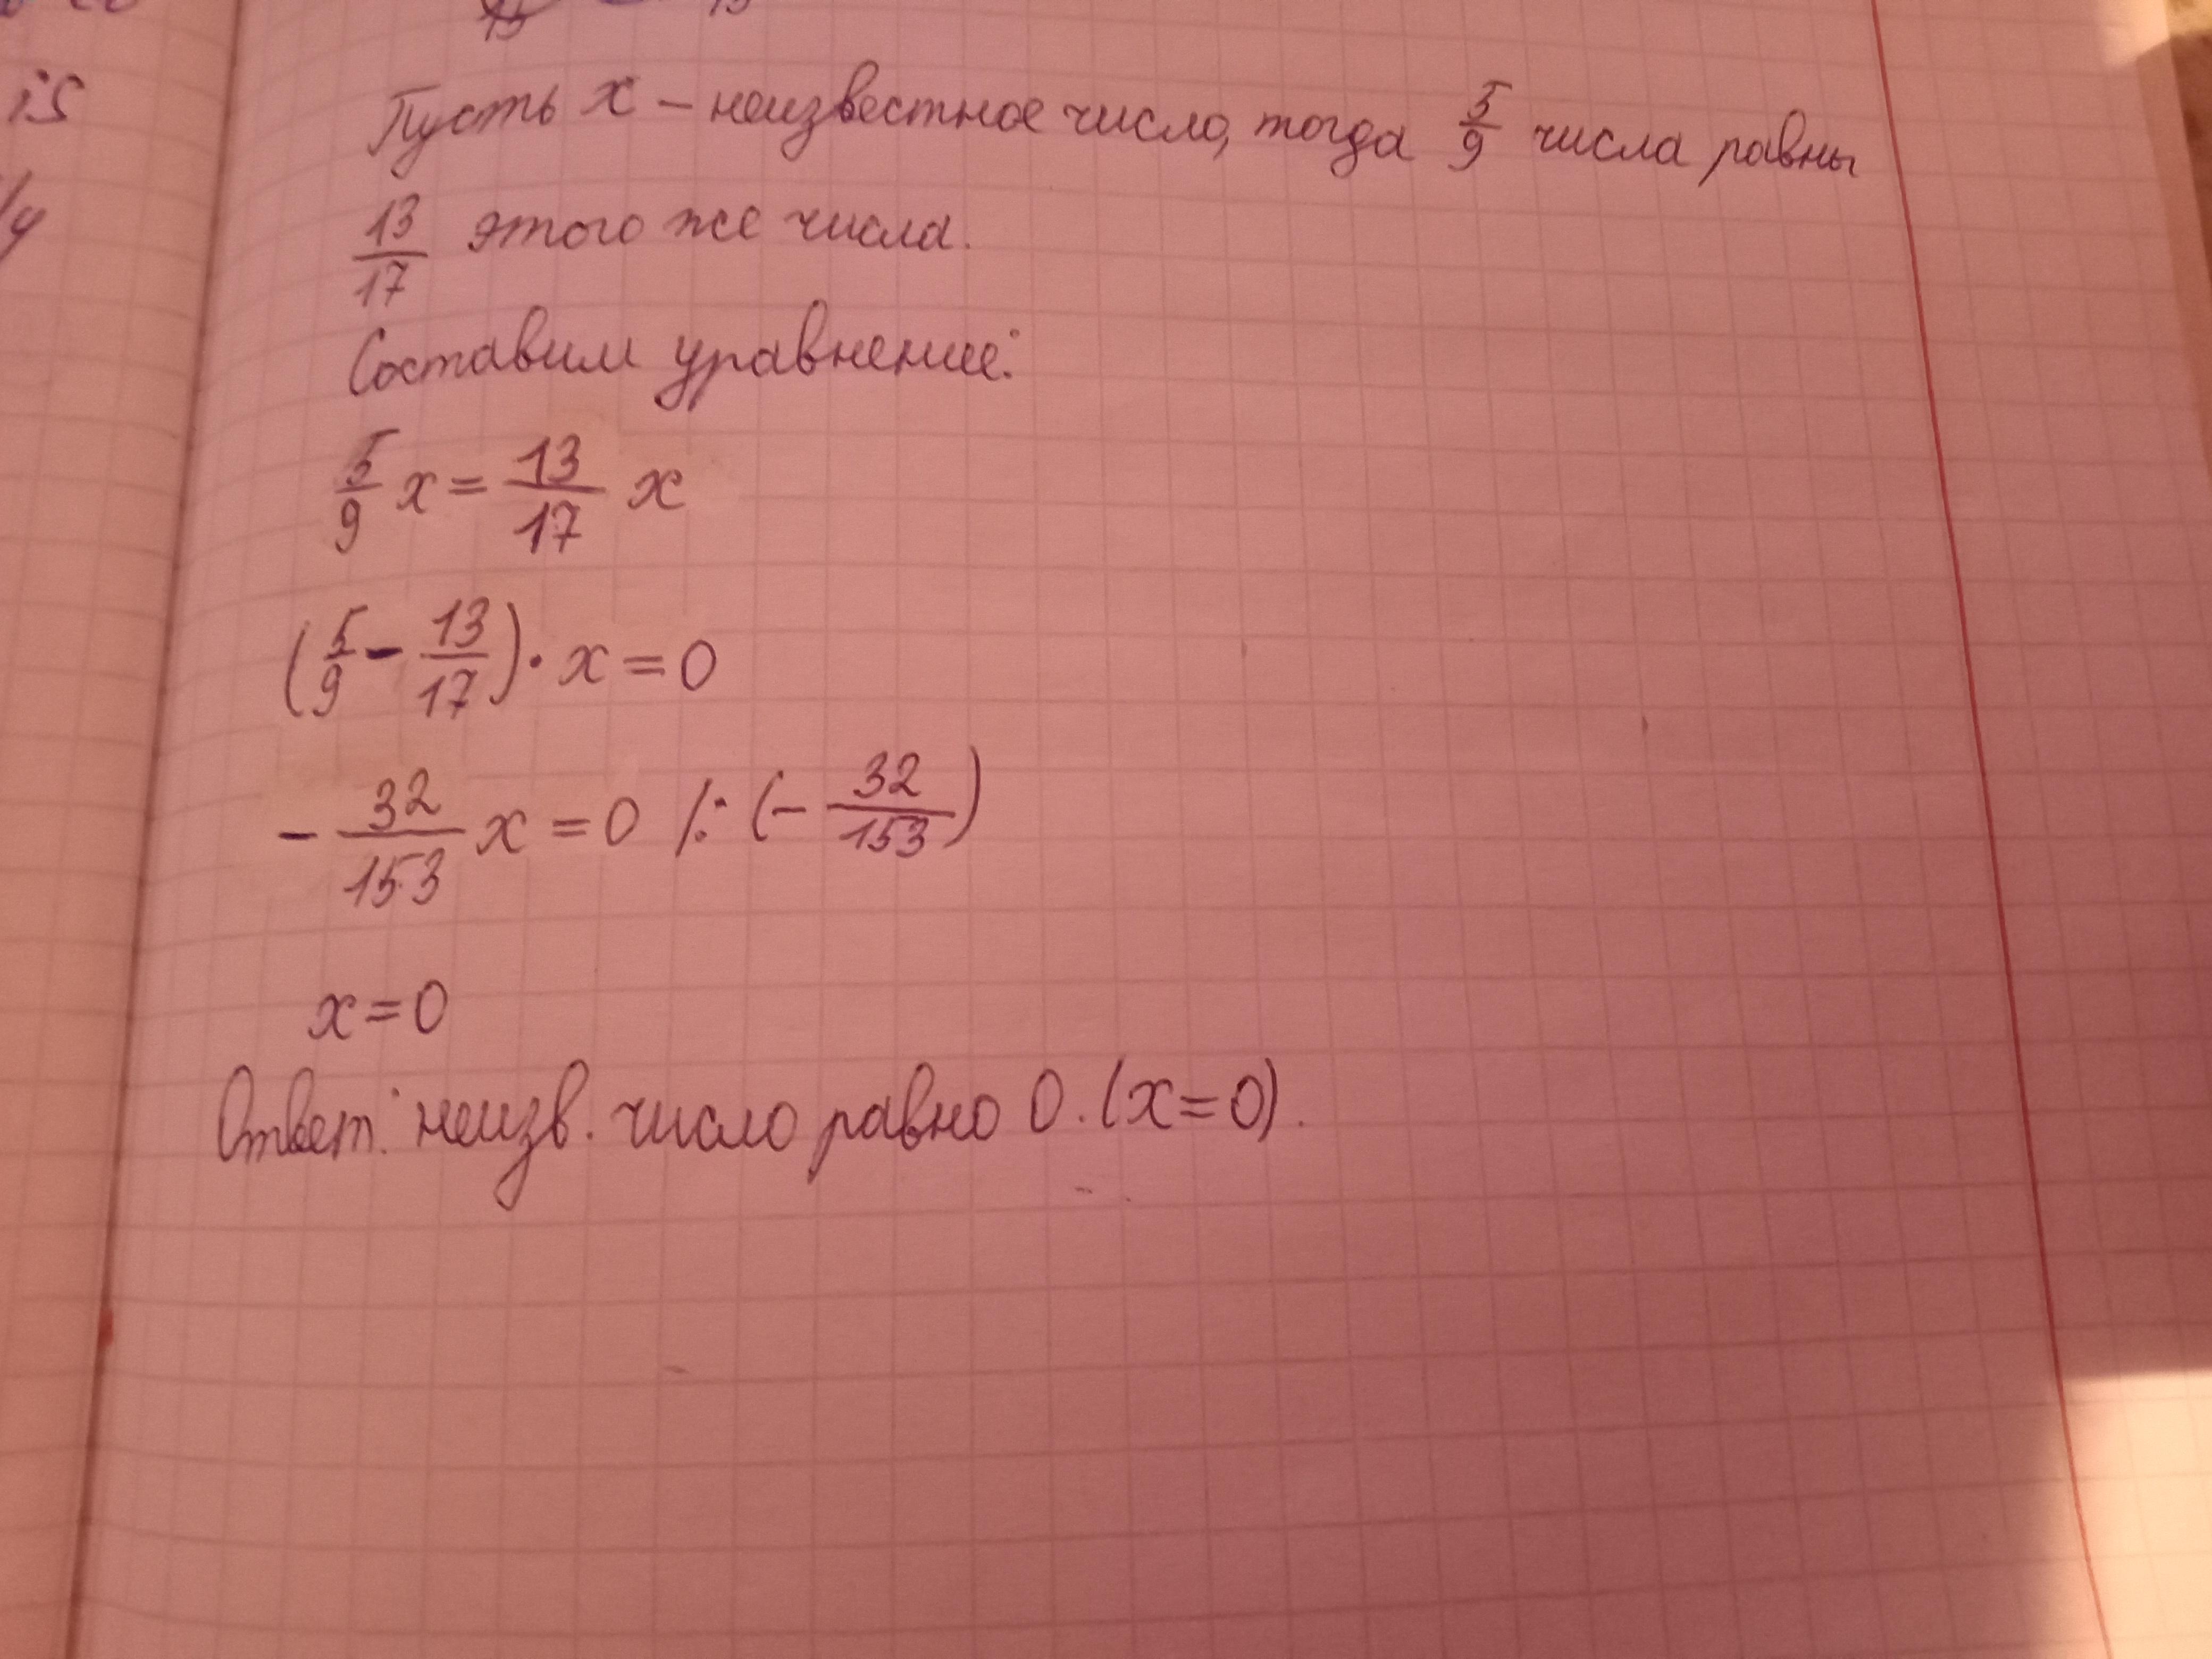 Пусть x – неизвестное число, тогда 5/9 числа равны
13/17 этого же числа.
Составим уравнение:
5/9 x = 13/17 x
(5/9 - 13/17) · x = 0
- 32/153 x = 0 /: (- 32/153)
x = 0
Ответ: неизв. число равно 0. (x=0).